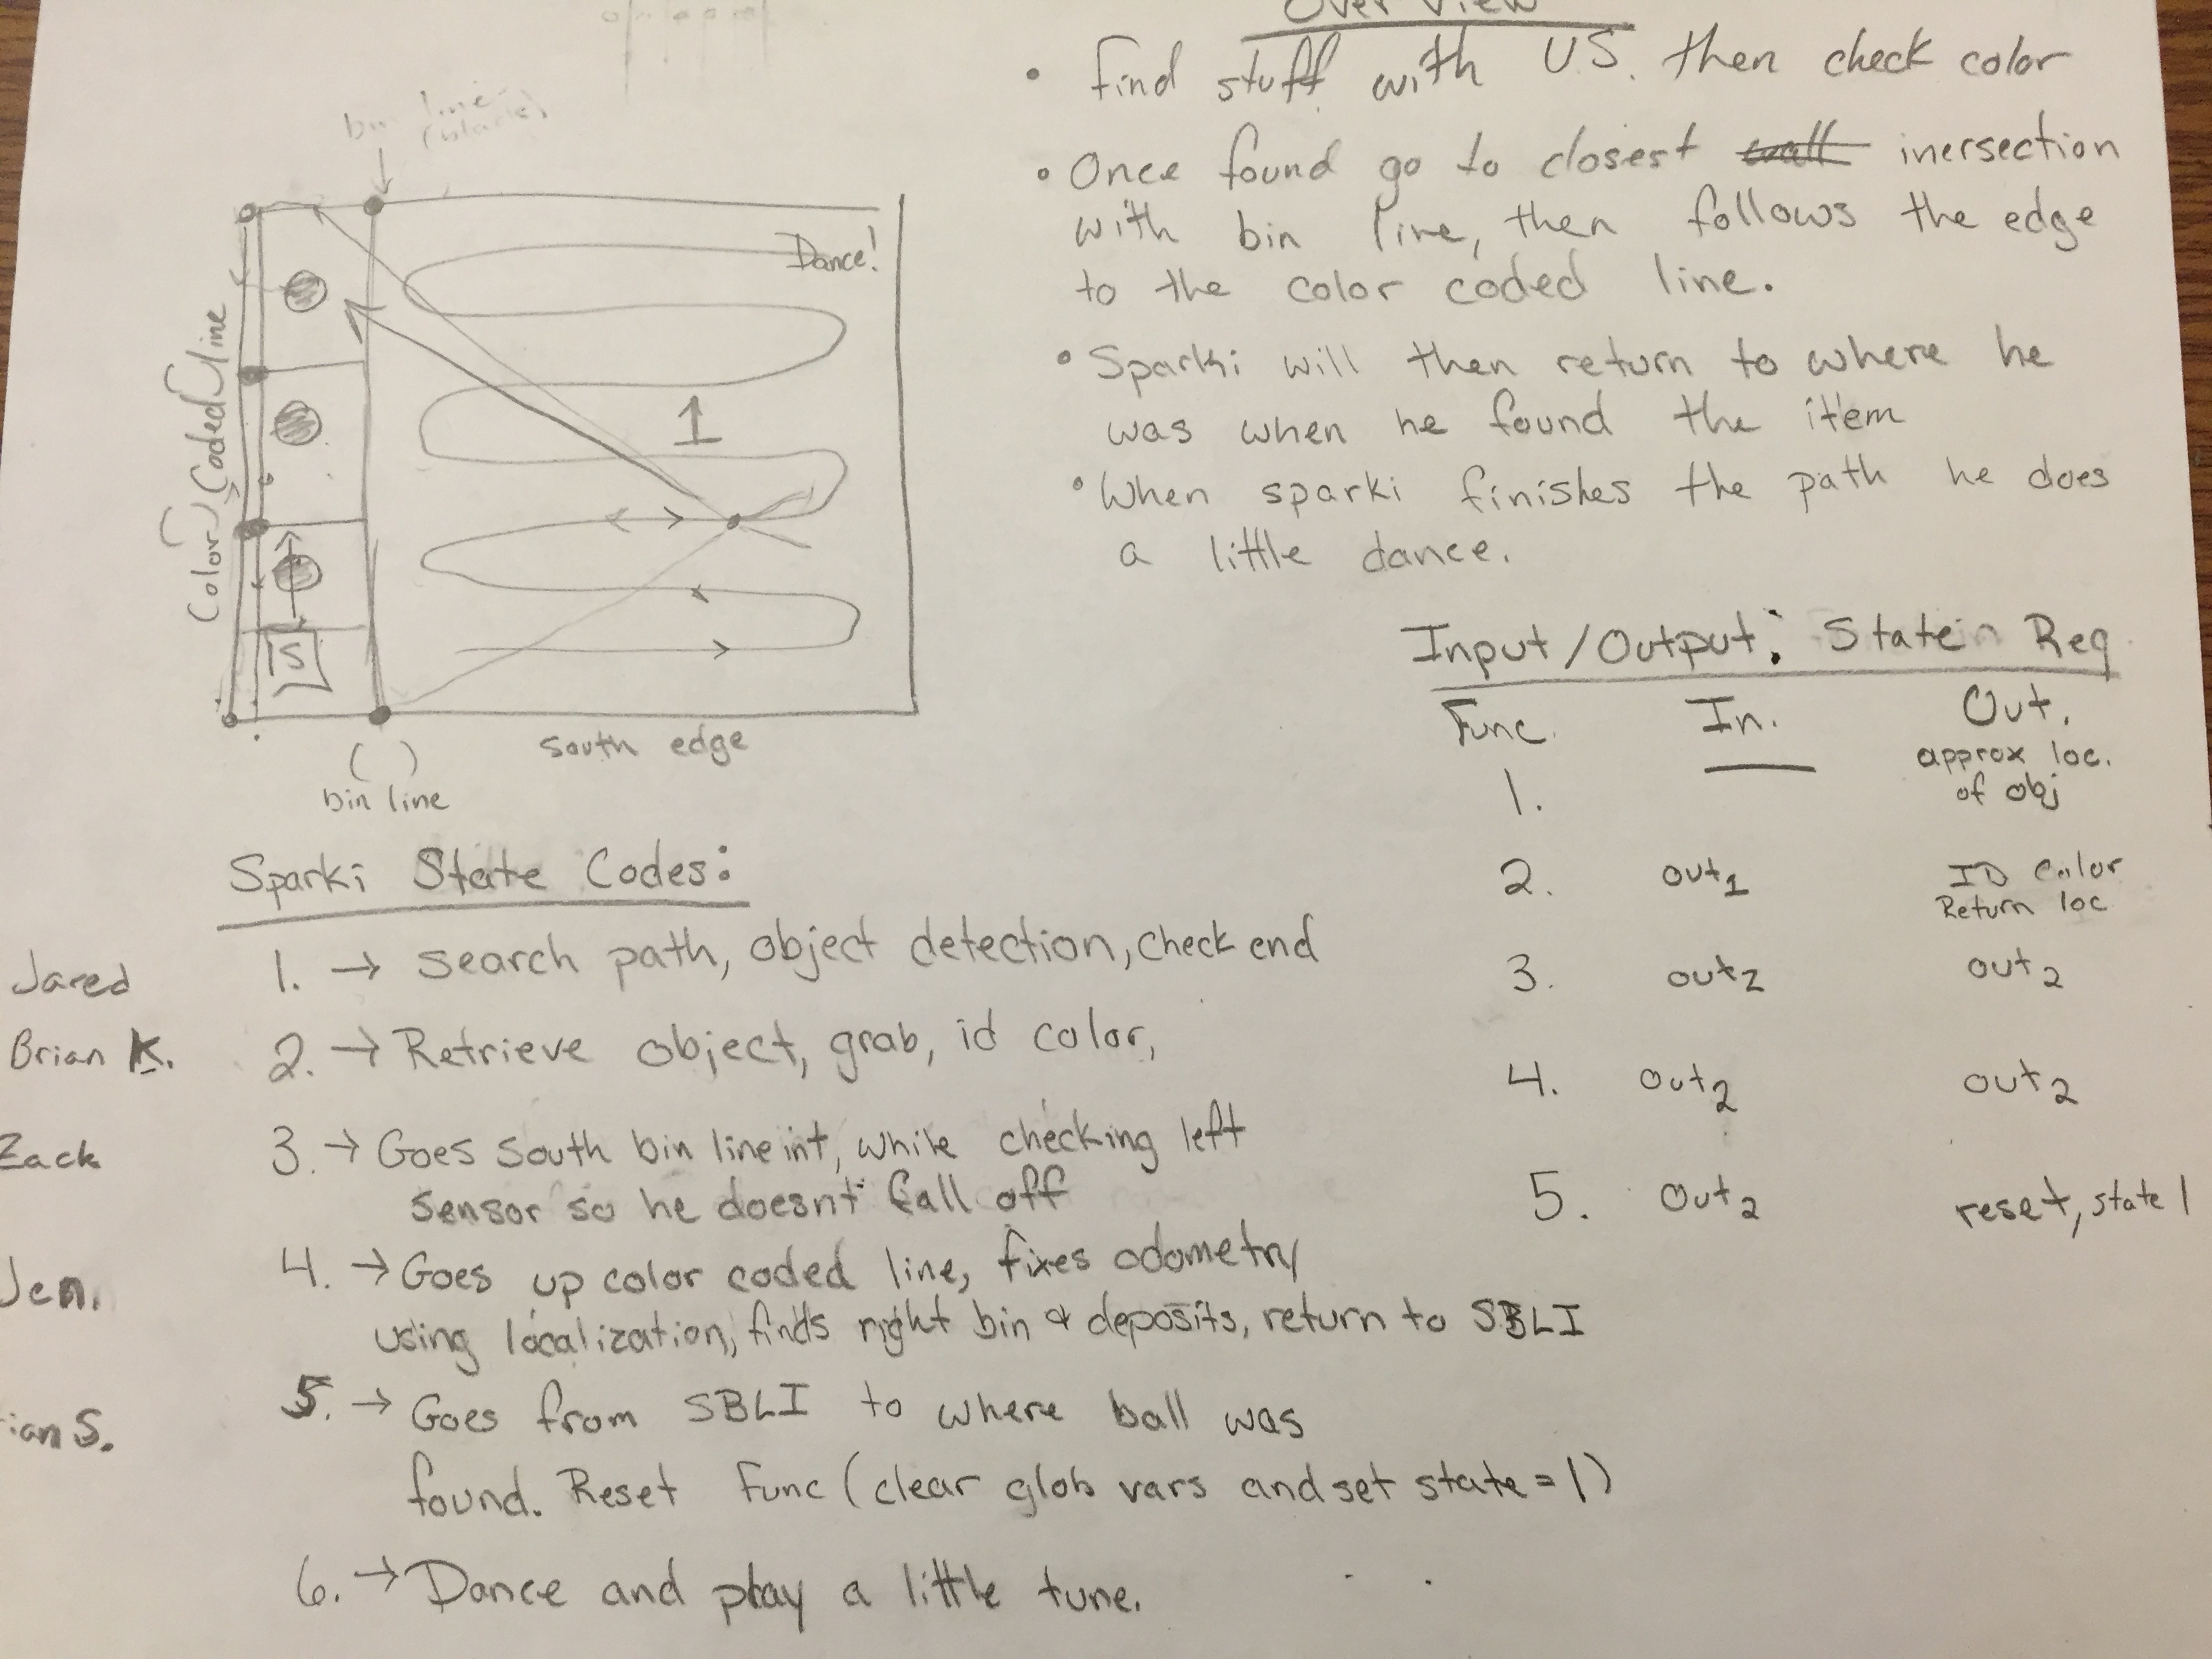 Over View
• find stuff with U.S. then check color
• Once found go to closest wall inersection
with bin line, then follows the edge
to the color coded line.
• Sparki will then return to where he
was when he found the item
• When sparki finishes the path he does
a little dance.
bin line
Dance!
Color Coded line
1
S
south edge
( )
bin line
Input/Output: State Req
Func. In. Out.
1. — approx loc.
of obj
2. out1 ID Color
Return loc
3. out2 out2
4. out2 out2
5. Out2 reset, state 1
Sparki State Codes:
Jared 1. → search path, object detection, check end
Brian K. 2. → Retrieve object, grab, id color,
Zack 3. → Goes south bin line int, while checking left
sensor so he doesnt fall off
Jen. 4. → Goes up color coded line, fixes odometry
using localization, finds right bin & deposits, return to SBLI
ian S. 5. → Goes from SBLI to where ball was
found. Reset Func (clear glob vars and set state = 1)
6. → Dance and play a little tune.